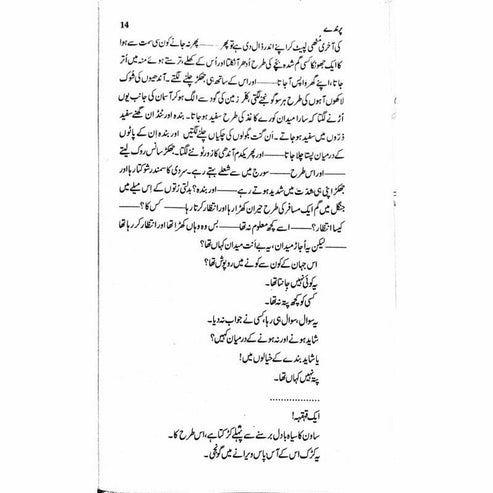 پرندے 14
کی آخری مٹھی لپیٹ کر اپنے اندر ڈال دی ہے تو پھر ——— پھر نہ جانے کون سی سمت سے ہوا
کا ایک جھونکا کسی گم شدہ بچے کی طرح اُدھر آ نکلتا اور اُس کے کھلے، ترستے ہوئے منہ میں اُتر
جاتا، اپنے گھر واپس آ جاتا ——— اور اس کے ساتھ ہی جھکڑ چلنے لگتے۔ آندھیوں کی شوک
لاکھوں آہوں کی طرح ہر سو گونجنے لگتی۔ کلر زمین کی گود سے الگ ہو کر آسمان کی جانب یوں
اُڑنے لگتا کہ سارا میدان کورے کاغذ کی طرح سفید ہو جاتا۔ بندہ اور ٹنڈ ان گھنے سفید
ذرّوں میں سفید ہو جاتے۔ ان گنت بگولوں کی چکیاں چلنے لگتیں اور بندہ ان کے پاٹوں
کے درمیان پستا چلا جاتا ——— اور پھر یکدم آندھی کا زور ٹوٹنے لگتا۔ جھکڑ سانس روک لیتے
——— اور اس طرح ——— سورج میں سے شعلے بہتے رہے۔ سردی کا سمندر شوکتا رہا اور
جھکڑ اپنی ہی شدّت میں شدید ہوتے رہے ——— اور بندہ؟ بدلتی رُتوں کے اِس میلے میں
جنگل میں گم ایک مسافر کی طرح حیران کھڑا رہا اور انتظار کرتا رہا ——— کس کا؟ ———
کیسا انتظار؟ ——— اسے کچھ معلوم نہ تھا ——— بس وہ وہاں کھڑا تھا اور انتظار کر رہا تھا
——— لیکن یہ اُجاڑ میدان، یہ بے اَنت میدان کہاں تھا؟
اس جہان کے کون سے کونے میں روپوش تھا؟
یہ کوئی نہیں جانتا تھا۔
کسی کو کچھ پتہ نہ تھا۔
یہ سوال، سوال ہی رہا، کسی نے جواب نہ دیا۔
شاید ہونے اور نہ ہونے کے درمیان کہیں؟
یا شاید بندے کے خیالوں میں!
پتہ نہیں کہاں تھا۔
..............
ایک قہقہہ!
ساون کا سیاہ بادل برسنے سے پہلے کڑکتا ہے، اس طرح کا۔
یہ کڑک اس کے آس پاس ویرانے میں گونجی۔